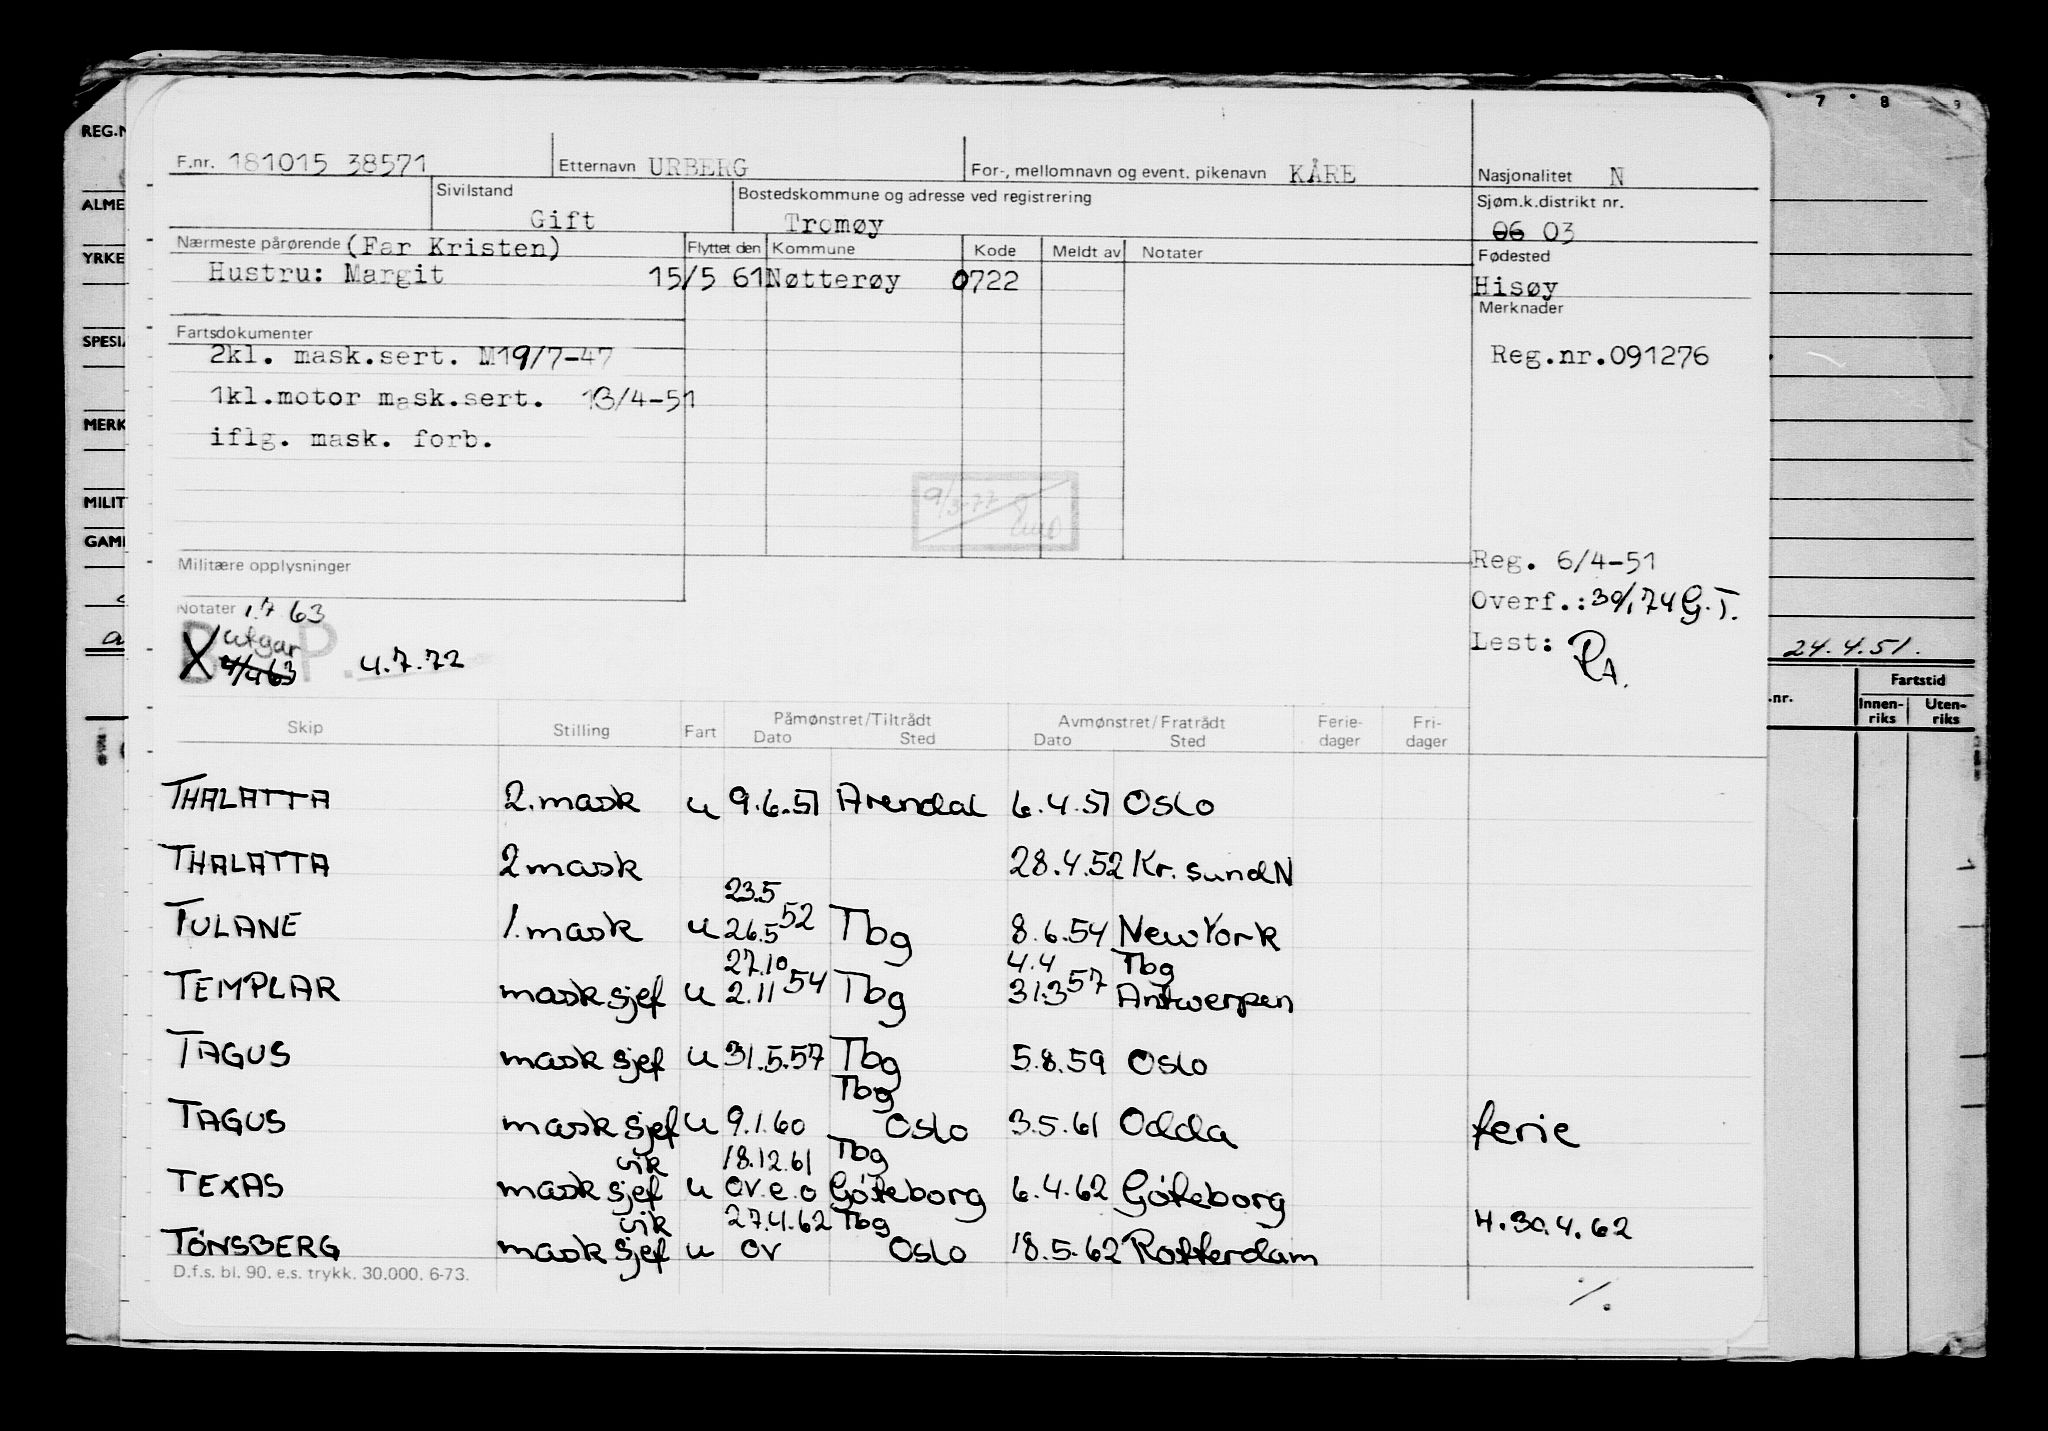 7 8 9
REG.N
F.nr. 181015 38571 Etternavn URBERG For-, mellomnavn og event. pikenavn KÅRE Nasjonalitet N
ALME
Sivilstand Gift Bostedskommune og adresse ved registrering Tromøy Sjøm.k.distrikt nr. 06 03
YRKE
Nærmeste pårørende (Far Kristen) Flyttet den Kommune Kode Meldt av Notater Fødested
Hustru: Margit 15/5 61 Nøtterøy 0722 Hisøy
Merknader
SPESIA
Fartsdokumenter
2kl. mask.sert. M19/7-47 Reg.nr.091276
1kl.motor mask.sert. 13/4-51
MERK
iflg. mask. forb.
MILIT
9/3-77
GAM
Militære opplysninger Reg. 6/4-51
Notater 1.7 63 Overf.: 30/1 74 G.T.
B P.
X utgår 4.7.72 Lest: RA.
24.4.51.
.nr. Fartstid
Innenriks Utenriks
Skip Stilling Fart Påmønstret/Tiltrådt Dato Sted Avmønstret/Fratrådt Dato Sted Feriedager Fridager
THALATTA 2.mask u 9.6.51 Arendal 6.4.51 Oslo
THALATTA 2 mask 28.4.52 Kr.sundN
23.5
TULANE 1.mask u 26.5 52 Tbg 8.6.54 New York
27.10 4.4 Tbg
TEMPLAR mask sjef u 2.11 54 Tbg 31.3 57 Antwerpen
TAGUS mask sjef u 31.5.57 Tbg 5.8.59 Oslo
Tbg
TAGUS mask sjef u 9.1.60 Oslo 3.5.61 Odda ferie
vik 18.12.61 Tbg
TEXAS mask sjef u ov.e.o Göteborg 6.4.62 Göteborg
vik 27.4.62 Tbg 4.30.4.62
TÖNSBERG mask sjef u ov Oslo 18.5.62 Rotterdam
D.f.s. bl. 90. e.s. trykk. 30.000. 6-73.
./.